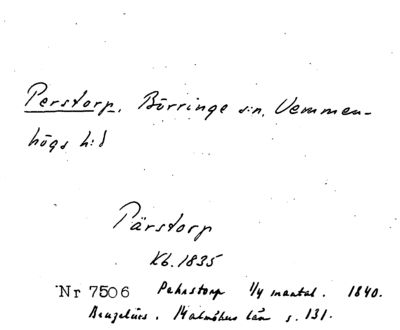 Perstorp. Börringe s:n. Vemmen-
högs h:d
Pärstorp
Kb. 1835
Nr 7506 Pehrstorp 1/4 mantal. 1840.
Bexelius. Malmöhus län s. 131.